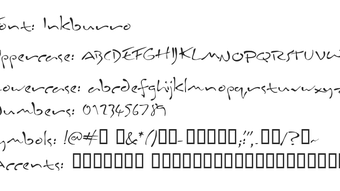 Font: Inkburro
Uppercase: ABCDEFGHIJKLMNOPQRSTUVW
Lowercase: abcdefghijklmnopqrstuvwxyz
Numbers: 0123456789
Symbols: !@#▯ ▯&*()▯▯-▯▯▯▯▯▯;:'",.▯▯/?▯~
Accents: ▯▯▯▯▯▯▯▯▯▯▯▯▯▯▯▯▯▯▯▯▯▯▯▯▯▯▯